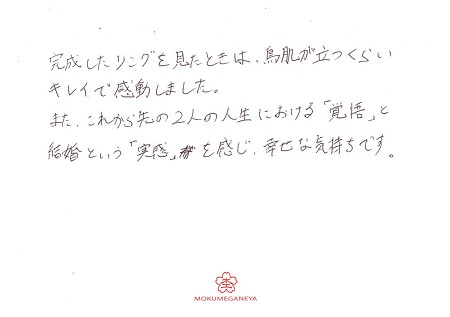 完成したリングを見たときは、鳥肌が立つくらい
キレイで感動しました。
また、これから先の2人の人生における「覚悟」と
結婚という「実感」を感じ、幸せな気持ちです。
MOKUMEGANEYA